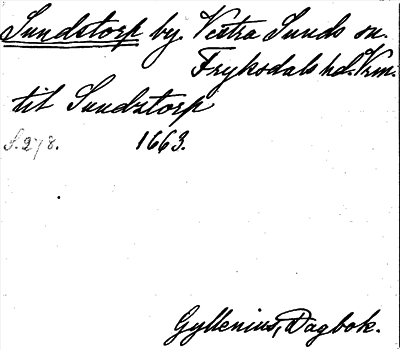 Sundstorp by. Vestra Sunds sn.
Fryksdals hd. Vrm.
til Sundztorp
S. 278. 1663.
Gyllenius, Dagbok.